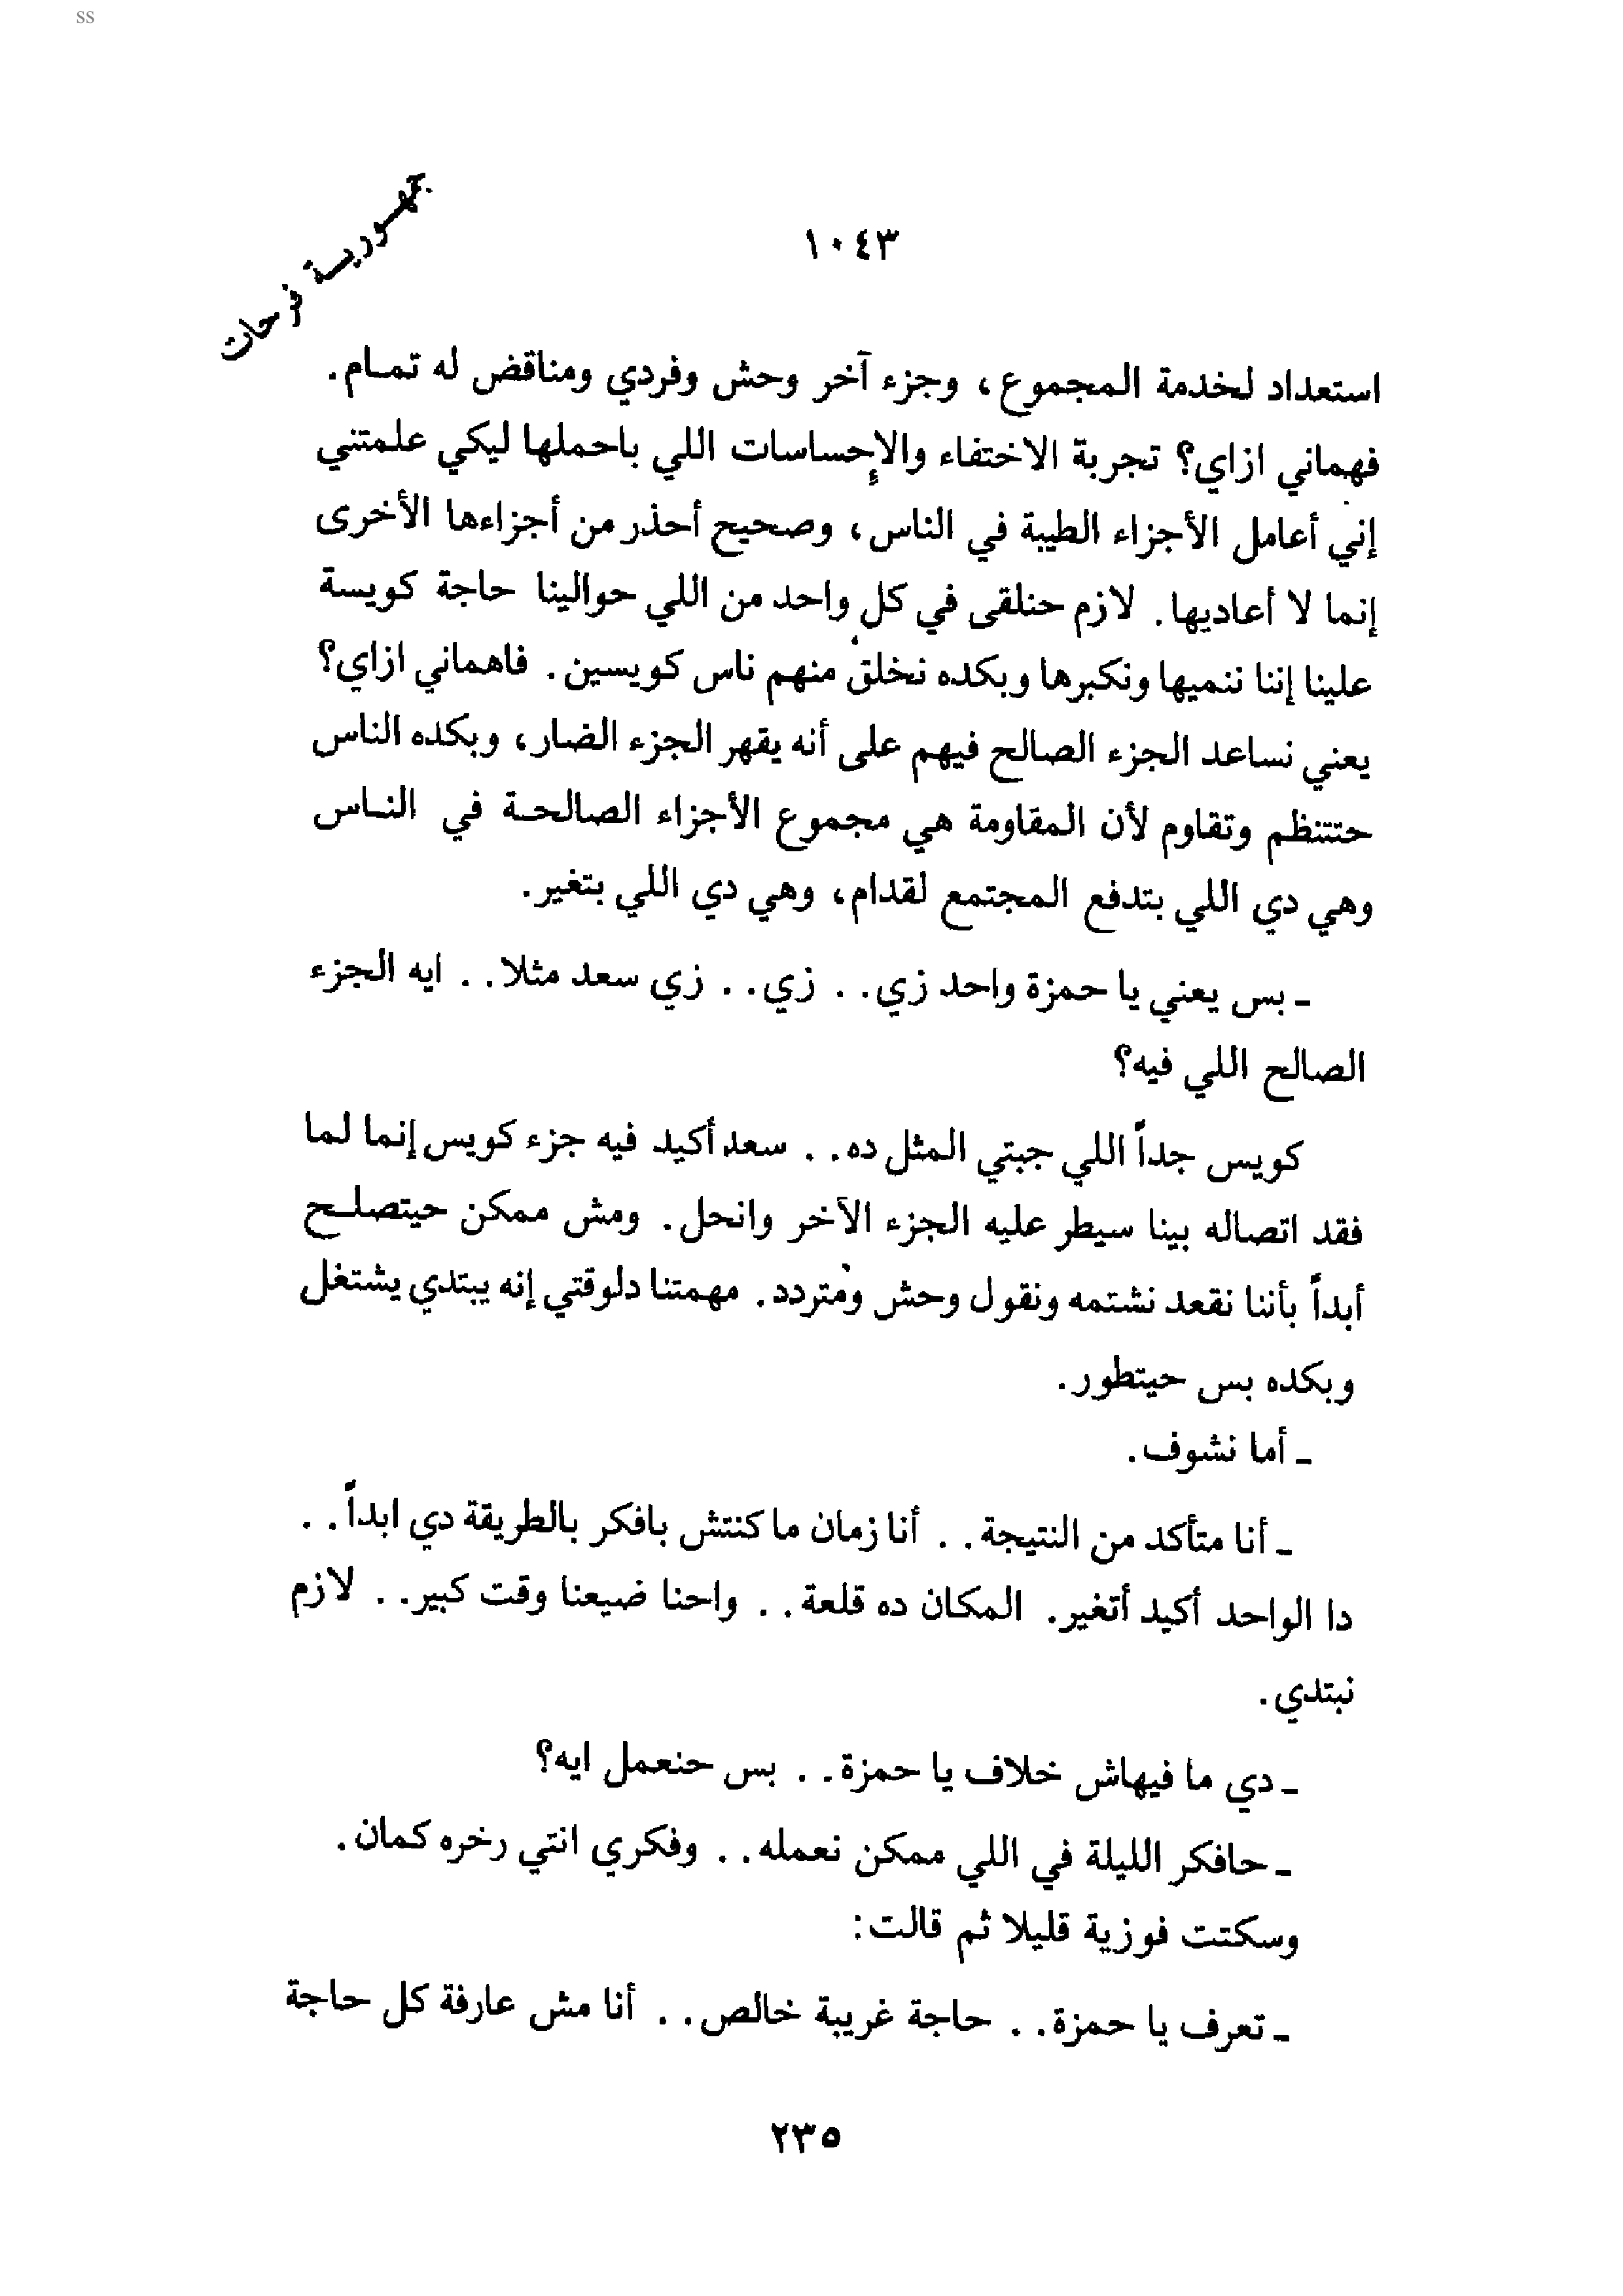 ss
جمهورية فرحات
١٠٤٣
استعداد لخدمة المجموع، وجزء آخر وحش وفردي ومناقض له تمـام.
فهماني ازاي؟ تجربة الاختفاء والإحساسات اللي باحملها ليكي علمتني
إني أعامل الأجزاء الطيبة في الناس، وصحيح أحذر من أجزاءها الأخرى
إنما لا أعاديها. لازم حنلقى في كل واحد من اللي حوالينا حاجة كويسة
علينا إننا ننميها ونكبرها وبكده نخلق منهم ناس كويسين. فاهماني ازاي؟
يعني نساعد الجزء الصالح فيهم على أنه يقهر الجزء الضار، وبكده الناس
حتتنظم وتقاوم لأن المقاومة هي مجموع الأجزاء الصالحـة في النـاس
وهي دي اللي بتدفع المجتمع لقدام، وهي دي اللي بتغير.
ـ بس يعني يا حمزة واحد زي.. زي.. زي سعد مثلا.. ايه الجزء
الصالح اللي فيه؟
كويس جداً اللي جبتي المثل ده.. سعد أكيد فيه جزء كويس إنما لما
فقد اتصاله بينا سيطر عليه الجزء الآخر وانحل. ومش ممكن حيتصلـح
أبداً بأننا نقعد نشتمه ونقول وحش ومتردد. مهمتنا دلوقتي إنه يبتدي يشتغل
وبكده بس حيتطور.
ـ أما نشوف.
ـ أنا متأكد من النتيجة.. أنا زمان ما كنتش بافكر بالطريقة دي ابداً..
دا الواحد أكيد أتغير. المكان ده قلعة.. واحنا ضيعنا وقت كبير.. لازم
نبتدي.
ـ دي ما فيهاش خلاف يا حمزة.. بس حنعمل ايه؟
ـ حافكر الليلة في اللي ممكن نعمله.. وفكري انتي رخره كمان.
وسكتت فوزية قليلا ثم قالت:
ـ تعرف يا حمزة.. حاجة غريبة خالص.. أنا مش عارفة كل حاجة
٢٣٥